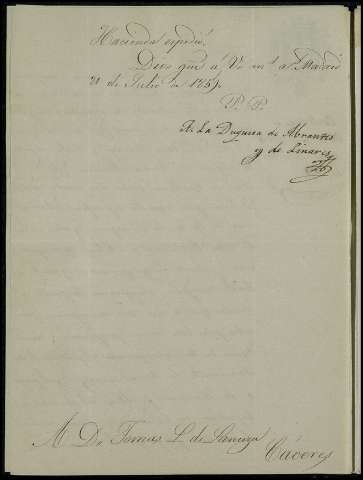 Hacienda espidió.
Dios gue á V. m.s a.s Madrid
21 de Julio de 1857.
P. P.
A. La Duquesa de Abrantes
y de Linares
S. D. Tomas L. de Sanuza
Cáceres